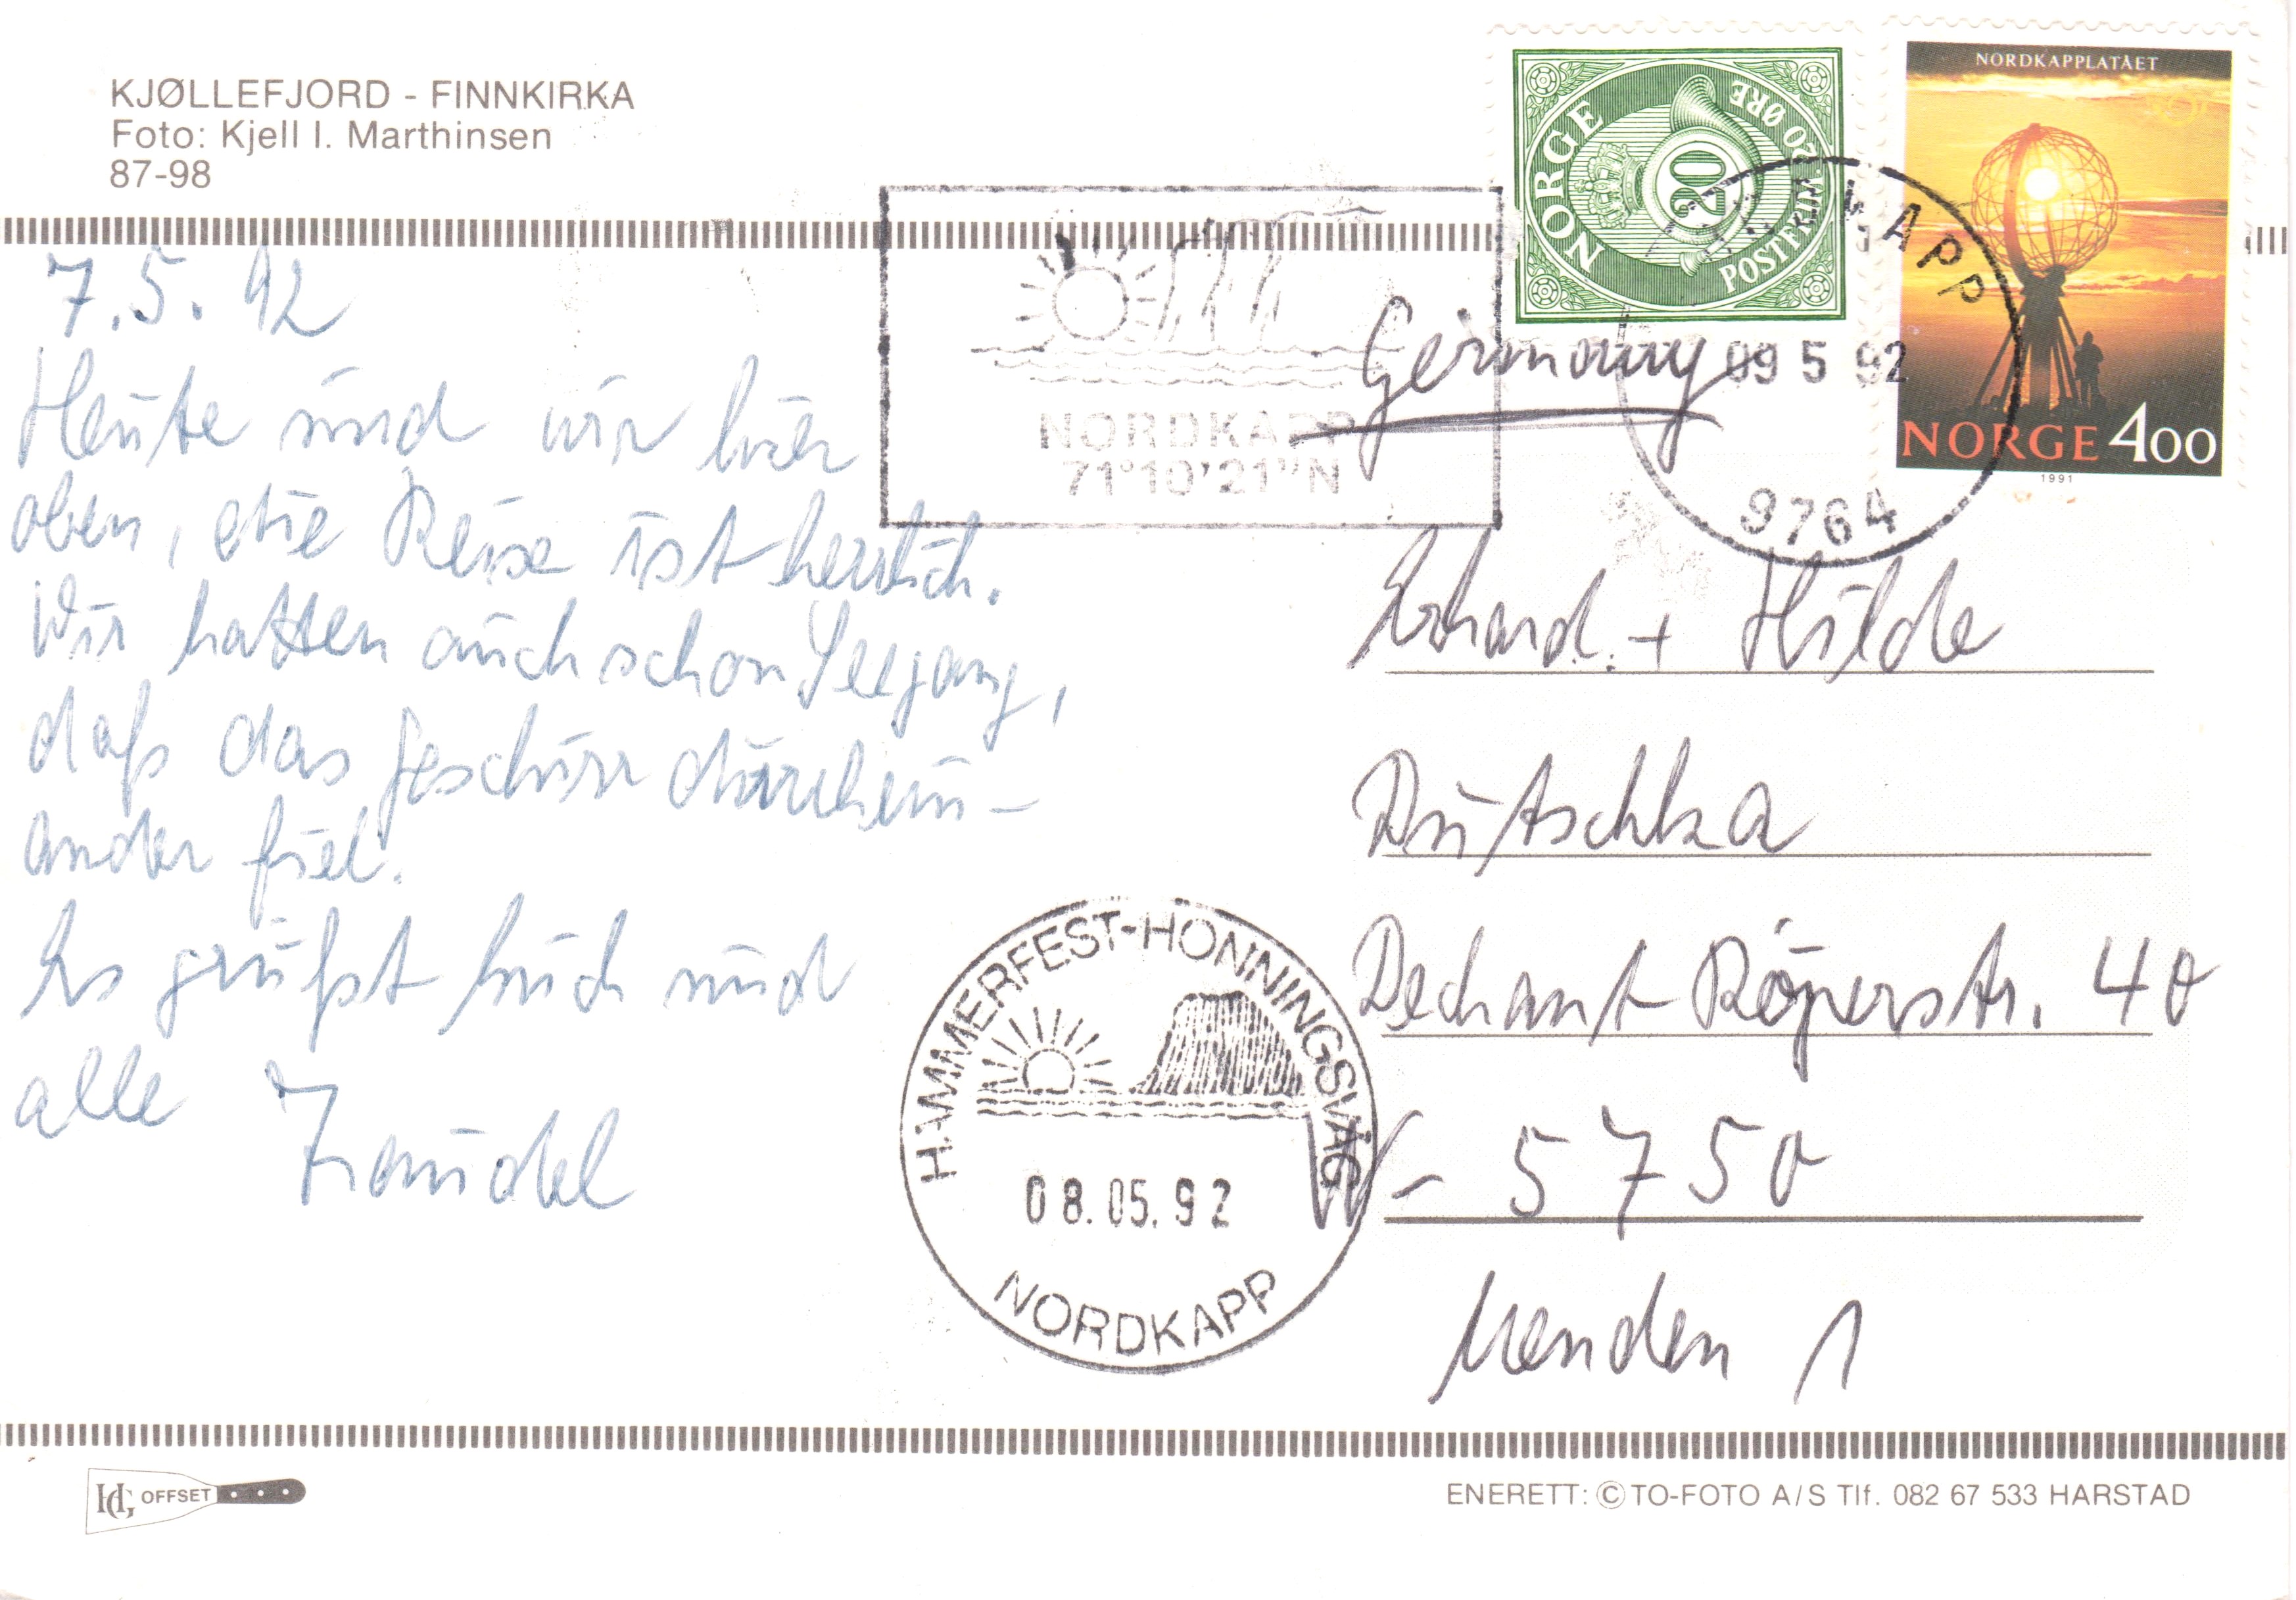 KJØLLEFJORD - FINNKIRKA
Foto: Kjell I. Marthinsen
87-98
7.5.92
Heute sind wir hier
oben, die Reise ist herrlich.
Wir hatten auch schon Seegang,
daß das Geschirr durchein-
ander fiel.
Es grüßt Euch und
alle
NORDKAPP
71°10'21"N
NORGE
20
POSTFRIM. 20 ØRE
NORDKAPPLATÅET
NORGE 400
1991
NORDKAPP
09 5 92
9764
Germany
Erhard + Hilde
Dutschka
Dechant Röperstr. 40
W-5750
Menden 1
HAMMERFEST-HONNINGSVÅG
08.05.92
NORDKAPP
HG OFFSET
ENERETT: © TO-FOTO A/S Tlf. 082 67 533 HARSTAD